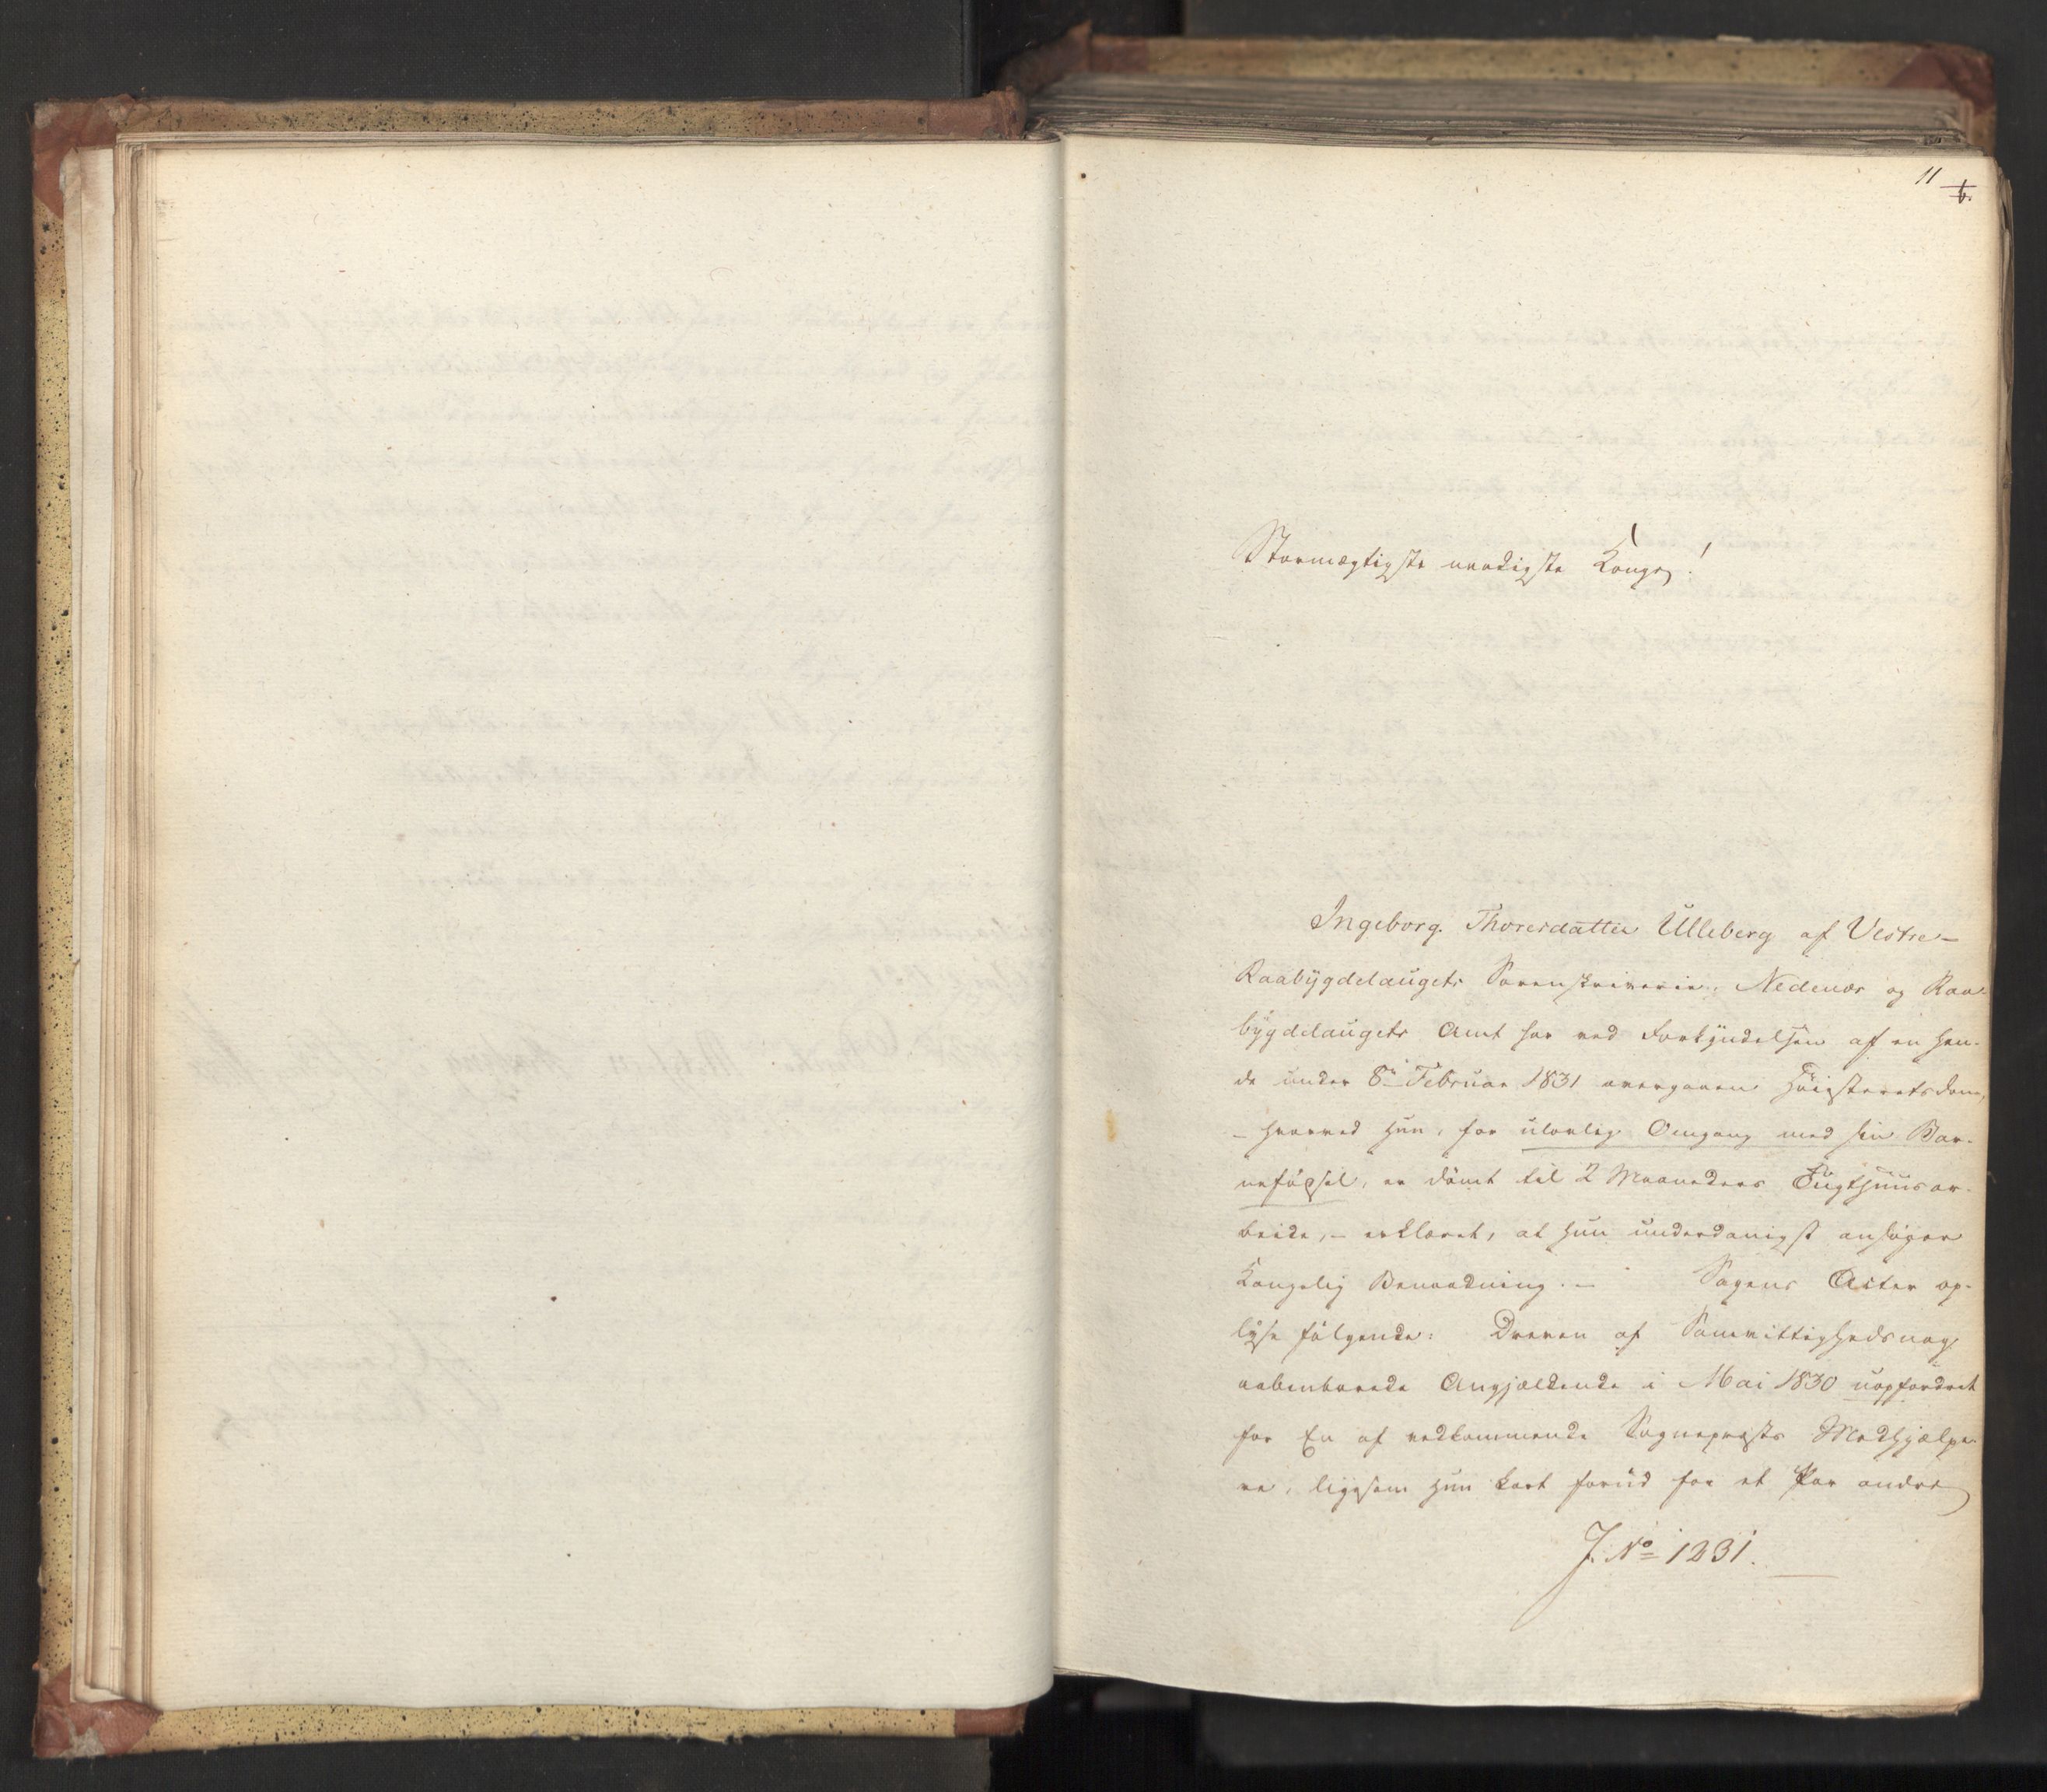 11 6.
Stormægtigste naadigste Konge!
Ingeborg Thoresdatter Ulleberg af Vestre-
Raabygdelaugets Sorenskriverie, Nedenæs og Raa-
bygdelaugets Amt har ved Forkyndelsen af en hen-
de under 8de Februar 1831 overgaaen Høiesteretsdom,
– hvorved hun, for ulovlig Omgang med sin Bar-
nefødsel, er dømt til 2 Maaneders Tugthuusar-
beide, – erklæret, at hun underdanigst ansøger
Kongelig Benaadning. – Sagens Acter op-
lyse følgende: Dreven af Samvittighedsnag
aabenbarede Angjældende i Mai 1830 uopfordret
for En af vedkommende Sognepræsts Medhjælpe-
re, ligesom hun kort forud for et Par andre
J. No 1231.